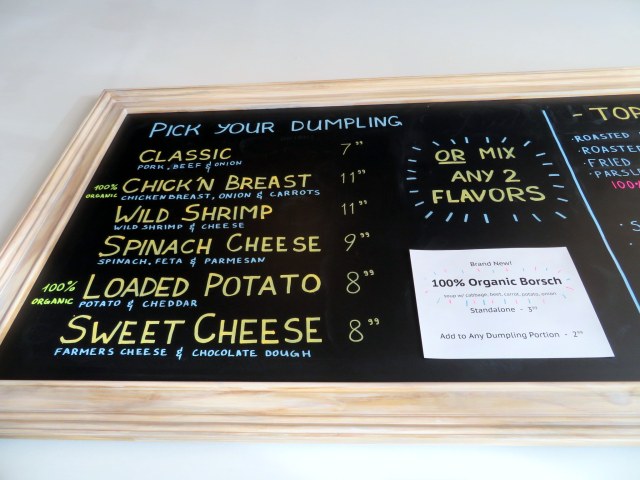 PICK YOUR DUMPLING
CLASSIC 7"
PORK, BEEF & ONION
100% ORGANIC CHICK'N BREAST 11"
CHICKEN BREAST, ONION & CARROTS
WILD SHRIMP 11"
WILD SHRIMP & CHEESE
SPINACH CHEESE 9⁹⁹
SPINACH, FETA & PARMESAN
100% ORGANIC LOADED POTATO 8⁹⁹
POTATO & CHEDDAR
SWEET CHEESE 8⁹⁹
FARMERS CHEESE & CHOCOLATE DOUGH
OR MIX
ANY 2
FLAVORS
Brand New!
100% Organic Borsch
Soup w/ cabbage, beet, carrot, potato, onion
Standalone -
Add to Any Dumpling Portion -
- TOP
·ROASTED
·ROASTE
·FRIED
·PARSL
100%
· S